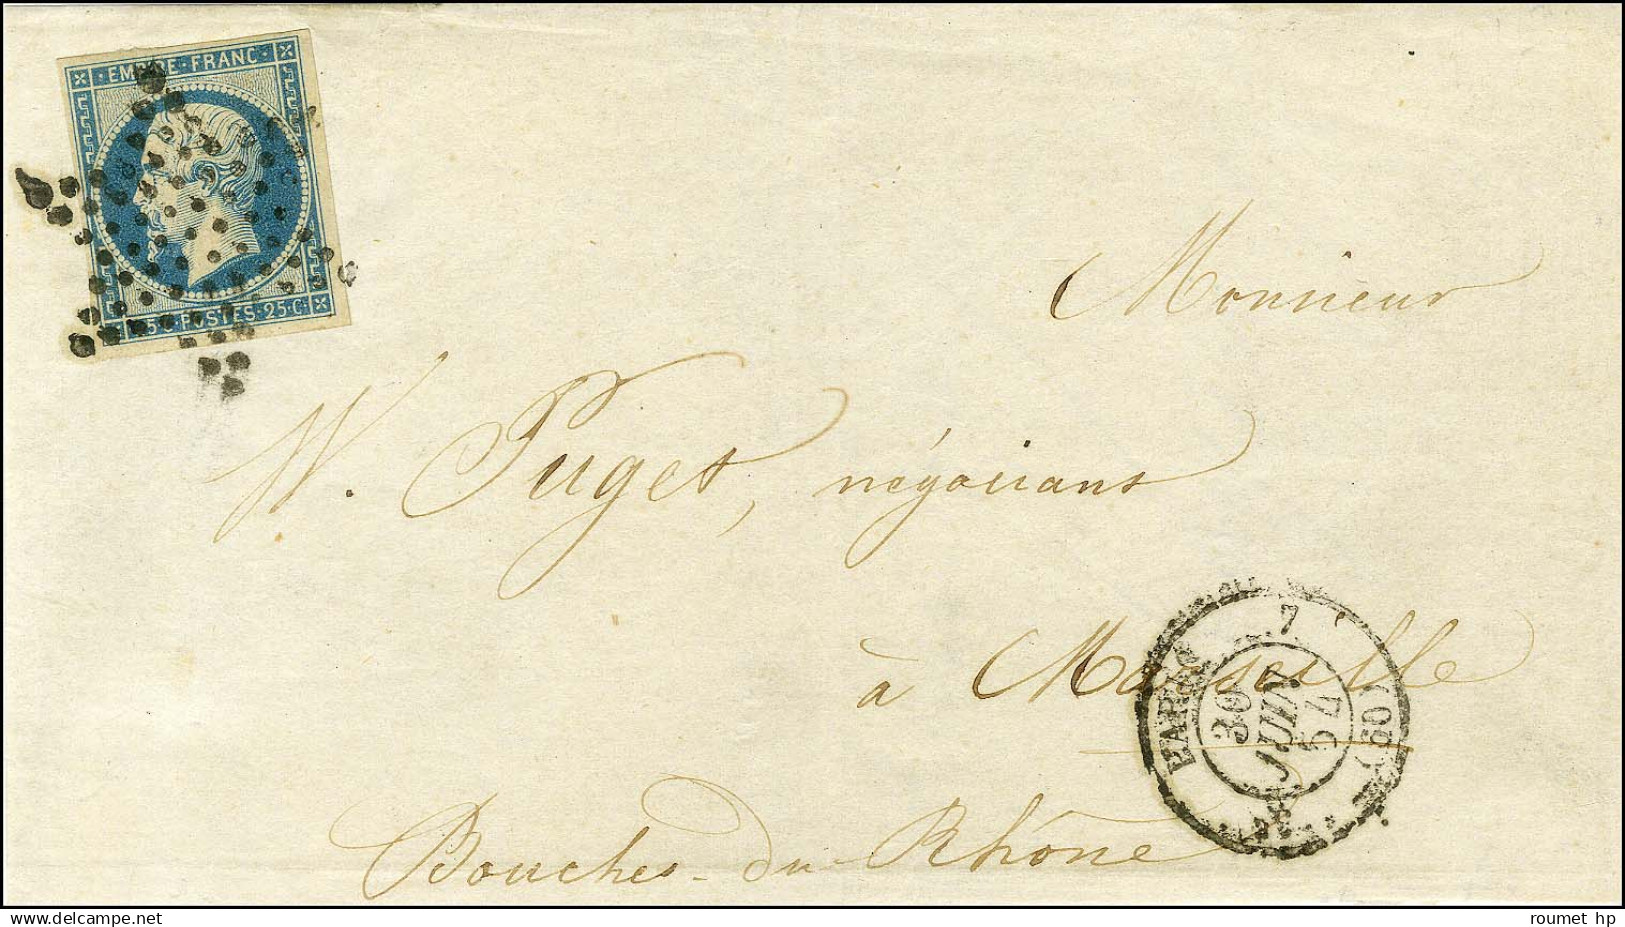 EMPIRE · FRANC ·
25·C · POSTES · 25·C·
Monsieur
W. Puget, négociant
à Marseille
Bouches-du-Rhône
7
PARIS
30
JUIN
54
(60)
www.delcampe.net
roumet hp